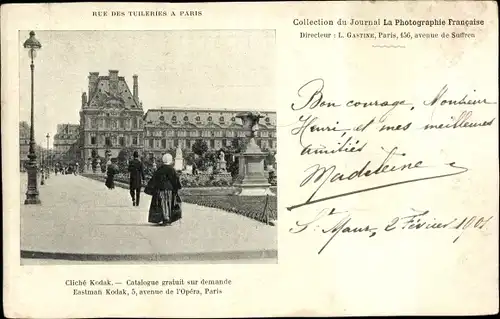 RUE DES TUILERIES A PARIS
Collection du Journal La Photographie Française
Directeur : L. GASTINE, Paris, 456, avenue de Suffren
Bon courage, Monsieur
Henri, et mes meilleures
amitiés
Madeleine
St Maur, 2 Février 1901
Cliché Kodak. — Catalogue gratuit sur demande
Eastman Kodak, 5, avenue de l'Opéra, Paris